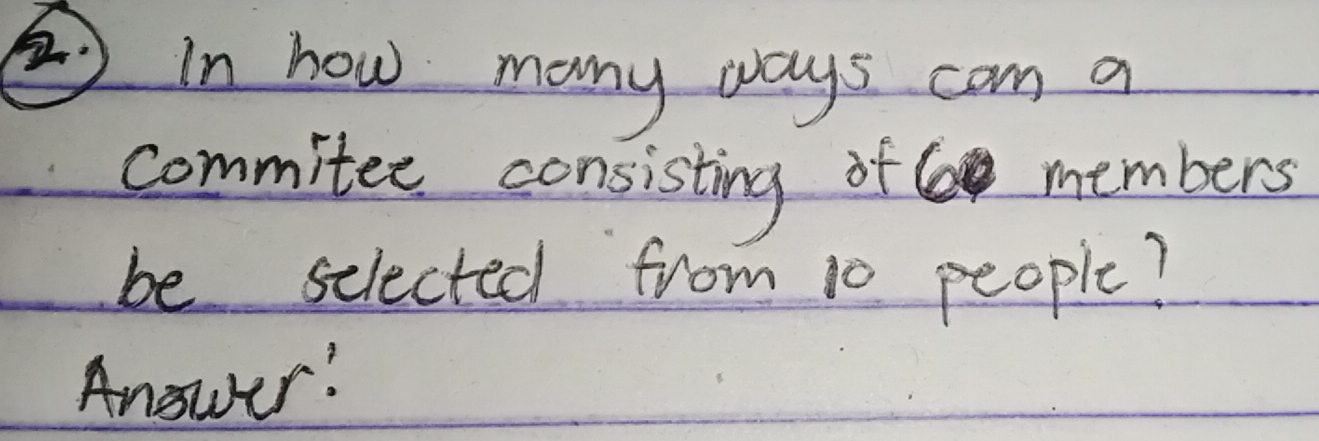 2. In how many ways can a
Commitee consisting of 6 members
be selected from 10 people?
Answer: